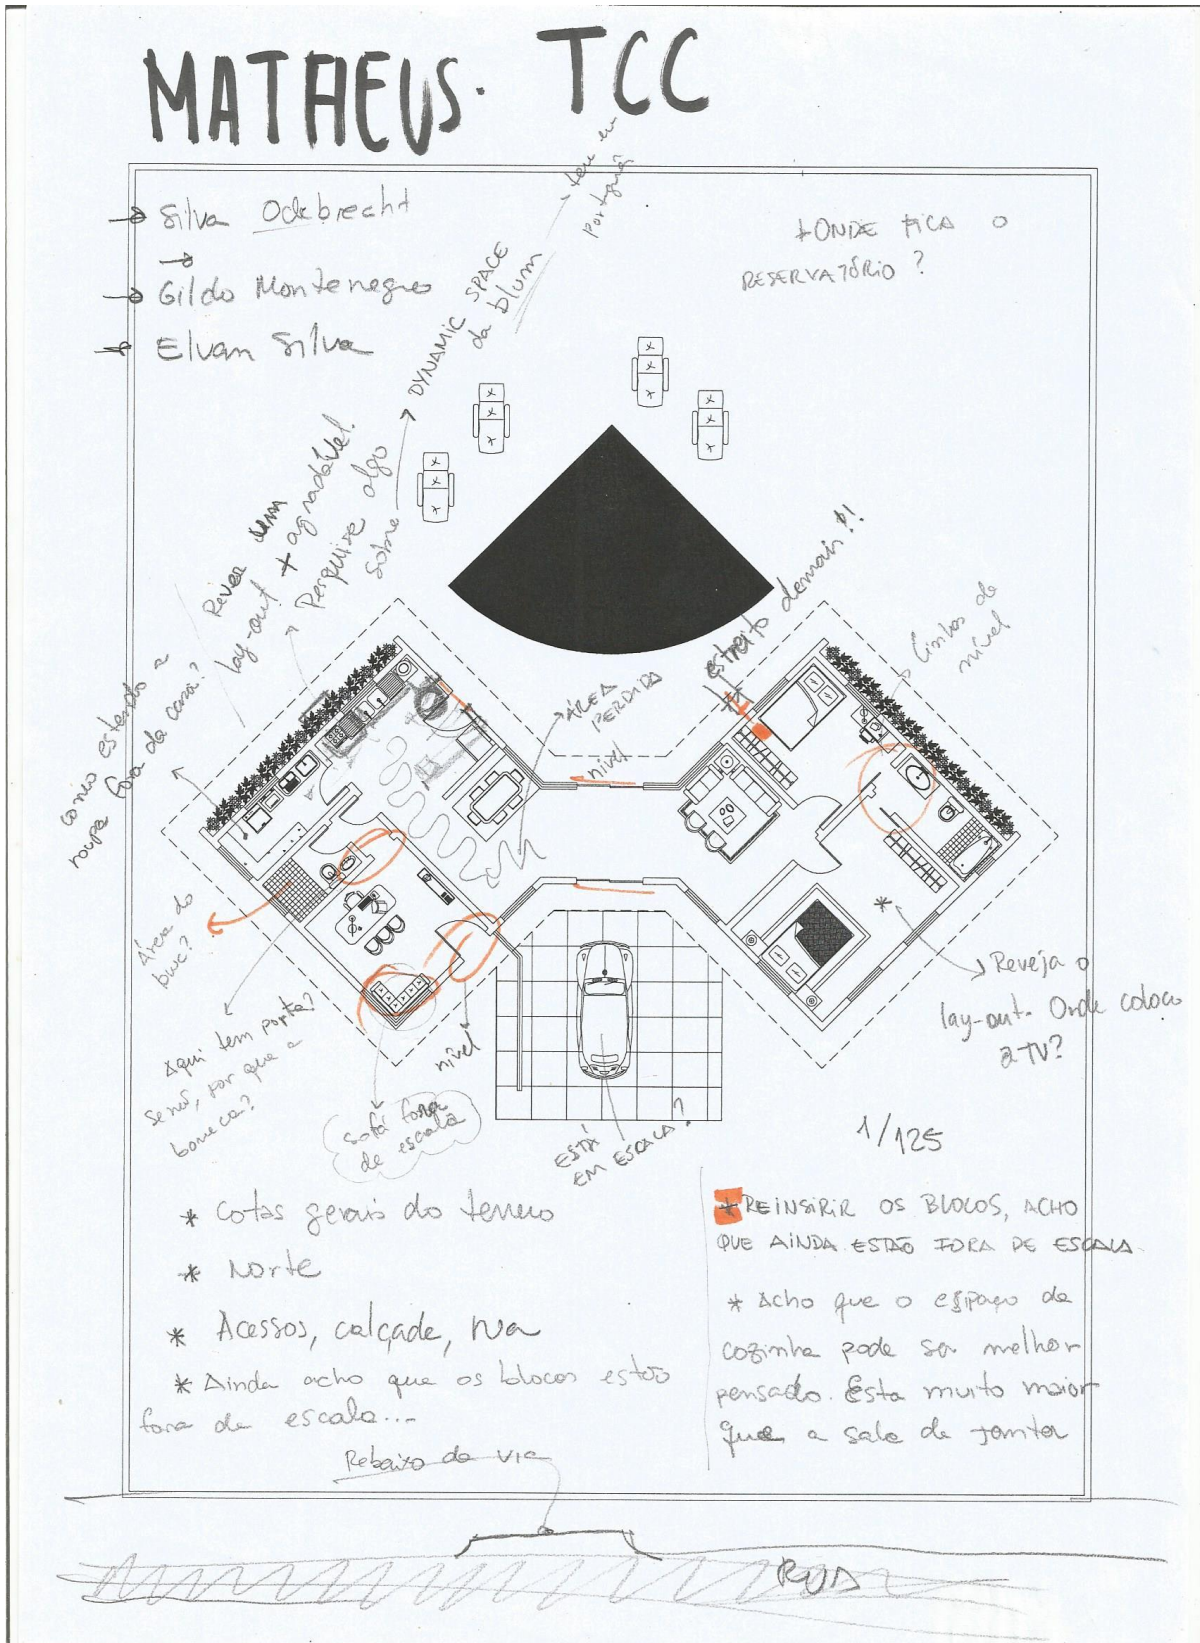 MATHEUS. TCC
Silva Odebrecht
Gildo Montenegro
Elvan Silva
+ ONDE FICA O
RESERVATÓRIO?
tem em
português
DYNAMIC SPACE
da blum
Rever
lay-out + agradável.
Pesquise algo
sobre
como estendo a
roupa fora da casa?
estreito demais!!
Linhas de
nível
ÁREA
PERDIDA
nível
Área do
bwc?
Aqui tem porta?
senão, por que a
boneca?
nível
Sofá fora
de escala
ESTÁ
EM ESCALA?
Reveja o
lay-out. Onde coloco
a TV?
1/125
* Cotas gerais do terreno
* Norte
* Acessos, calçada, rua
* Ainda acho que os blocos estão
fora de escala...
Rebaixo da via
* REINSIRIR OS BLOCOS, ACHO
QUE AINDA ESTÃO FORA DE ESCALA
* Acho que o espaço da
cozinha pode ser melhor
pensado. Esta muito maior
que a sala de jantar
RUA